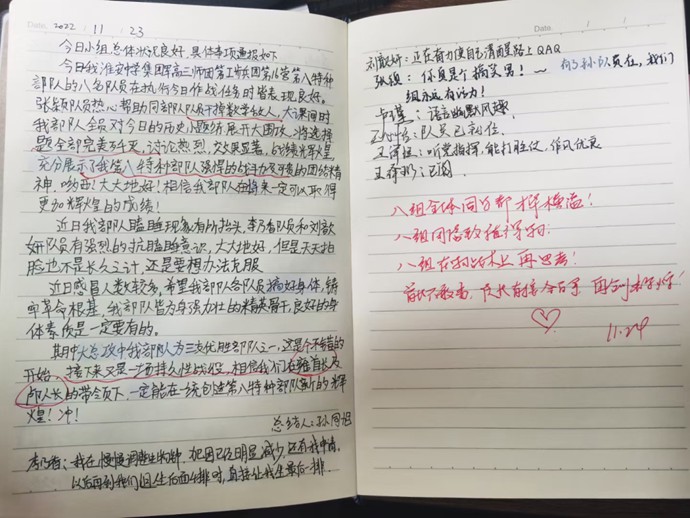 Date. 2022 / 11 / 23
今日小组总体状况良好,具体事项通报如下
今日我淮安中学集团军高三师团第工兵团第16营第八特种
部队的八名队员在执行今日作战任务时皆表现良好。
张颖队员热心帮助同部队队员干掉数学敌人,大课间时
我部队全员对今日的历史小题练展开大围攻,将选择
题全部完美歼灭,讨论热烈,交火显著,战绩光辉火煌
充分展示了我营八特种部队强悍的战斗力及可贵的团结精
神,呦西!大大地好!相信我部队在将来一定可以取得
更加辉煌的成绩!
近日我部队瞌睡现象有所抬头,李乃看队员和刘歆
妍队员有强烈的抗瞌睡意识,大大地好,但是天天拍
脸也不是长久之计,还是要想办法克服
近日感冒人数较多,希望我部队各队员搞好身体,铸
牢革命根基,我部队皆为身强力壮的精英骨干,良好的身
体素质是一定要有的。
其中大总攻中我部队为三支优胜部队之一,这是个不错的
开始,接下来又是一场持久性战役,相信我们在雍首长及
部队长的带领下,一定能在一统创造第八特种部队新的辉
煌!冲!
总结人:孙同旭
李乃看:我在慢慢调整生物钟,犯困已经明显减少,还有我申请,
以后再到我们组坐后面4排时,直接让我坐最后一排
Date / /
刘歆妍:正在奋力使自己清醒路上QAQ
张颖:你真是个搞笑男!~ 有了孙队员在,我们
组永远有活力!
语言幽默风趣
队员已就位
听党指挥,能打胜仗,作风优良
已阅
八组全体同学都才华横溢!
八组同络致推得初
八组在战术上再思考!
11.24